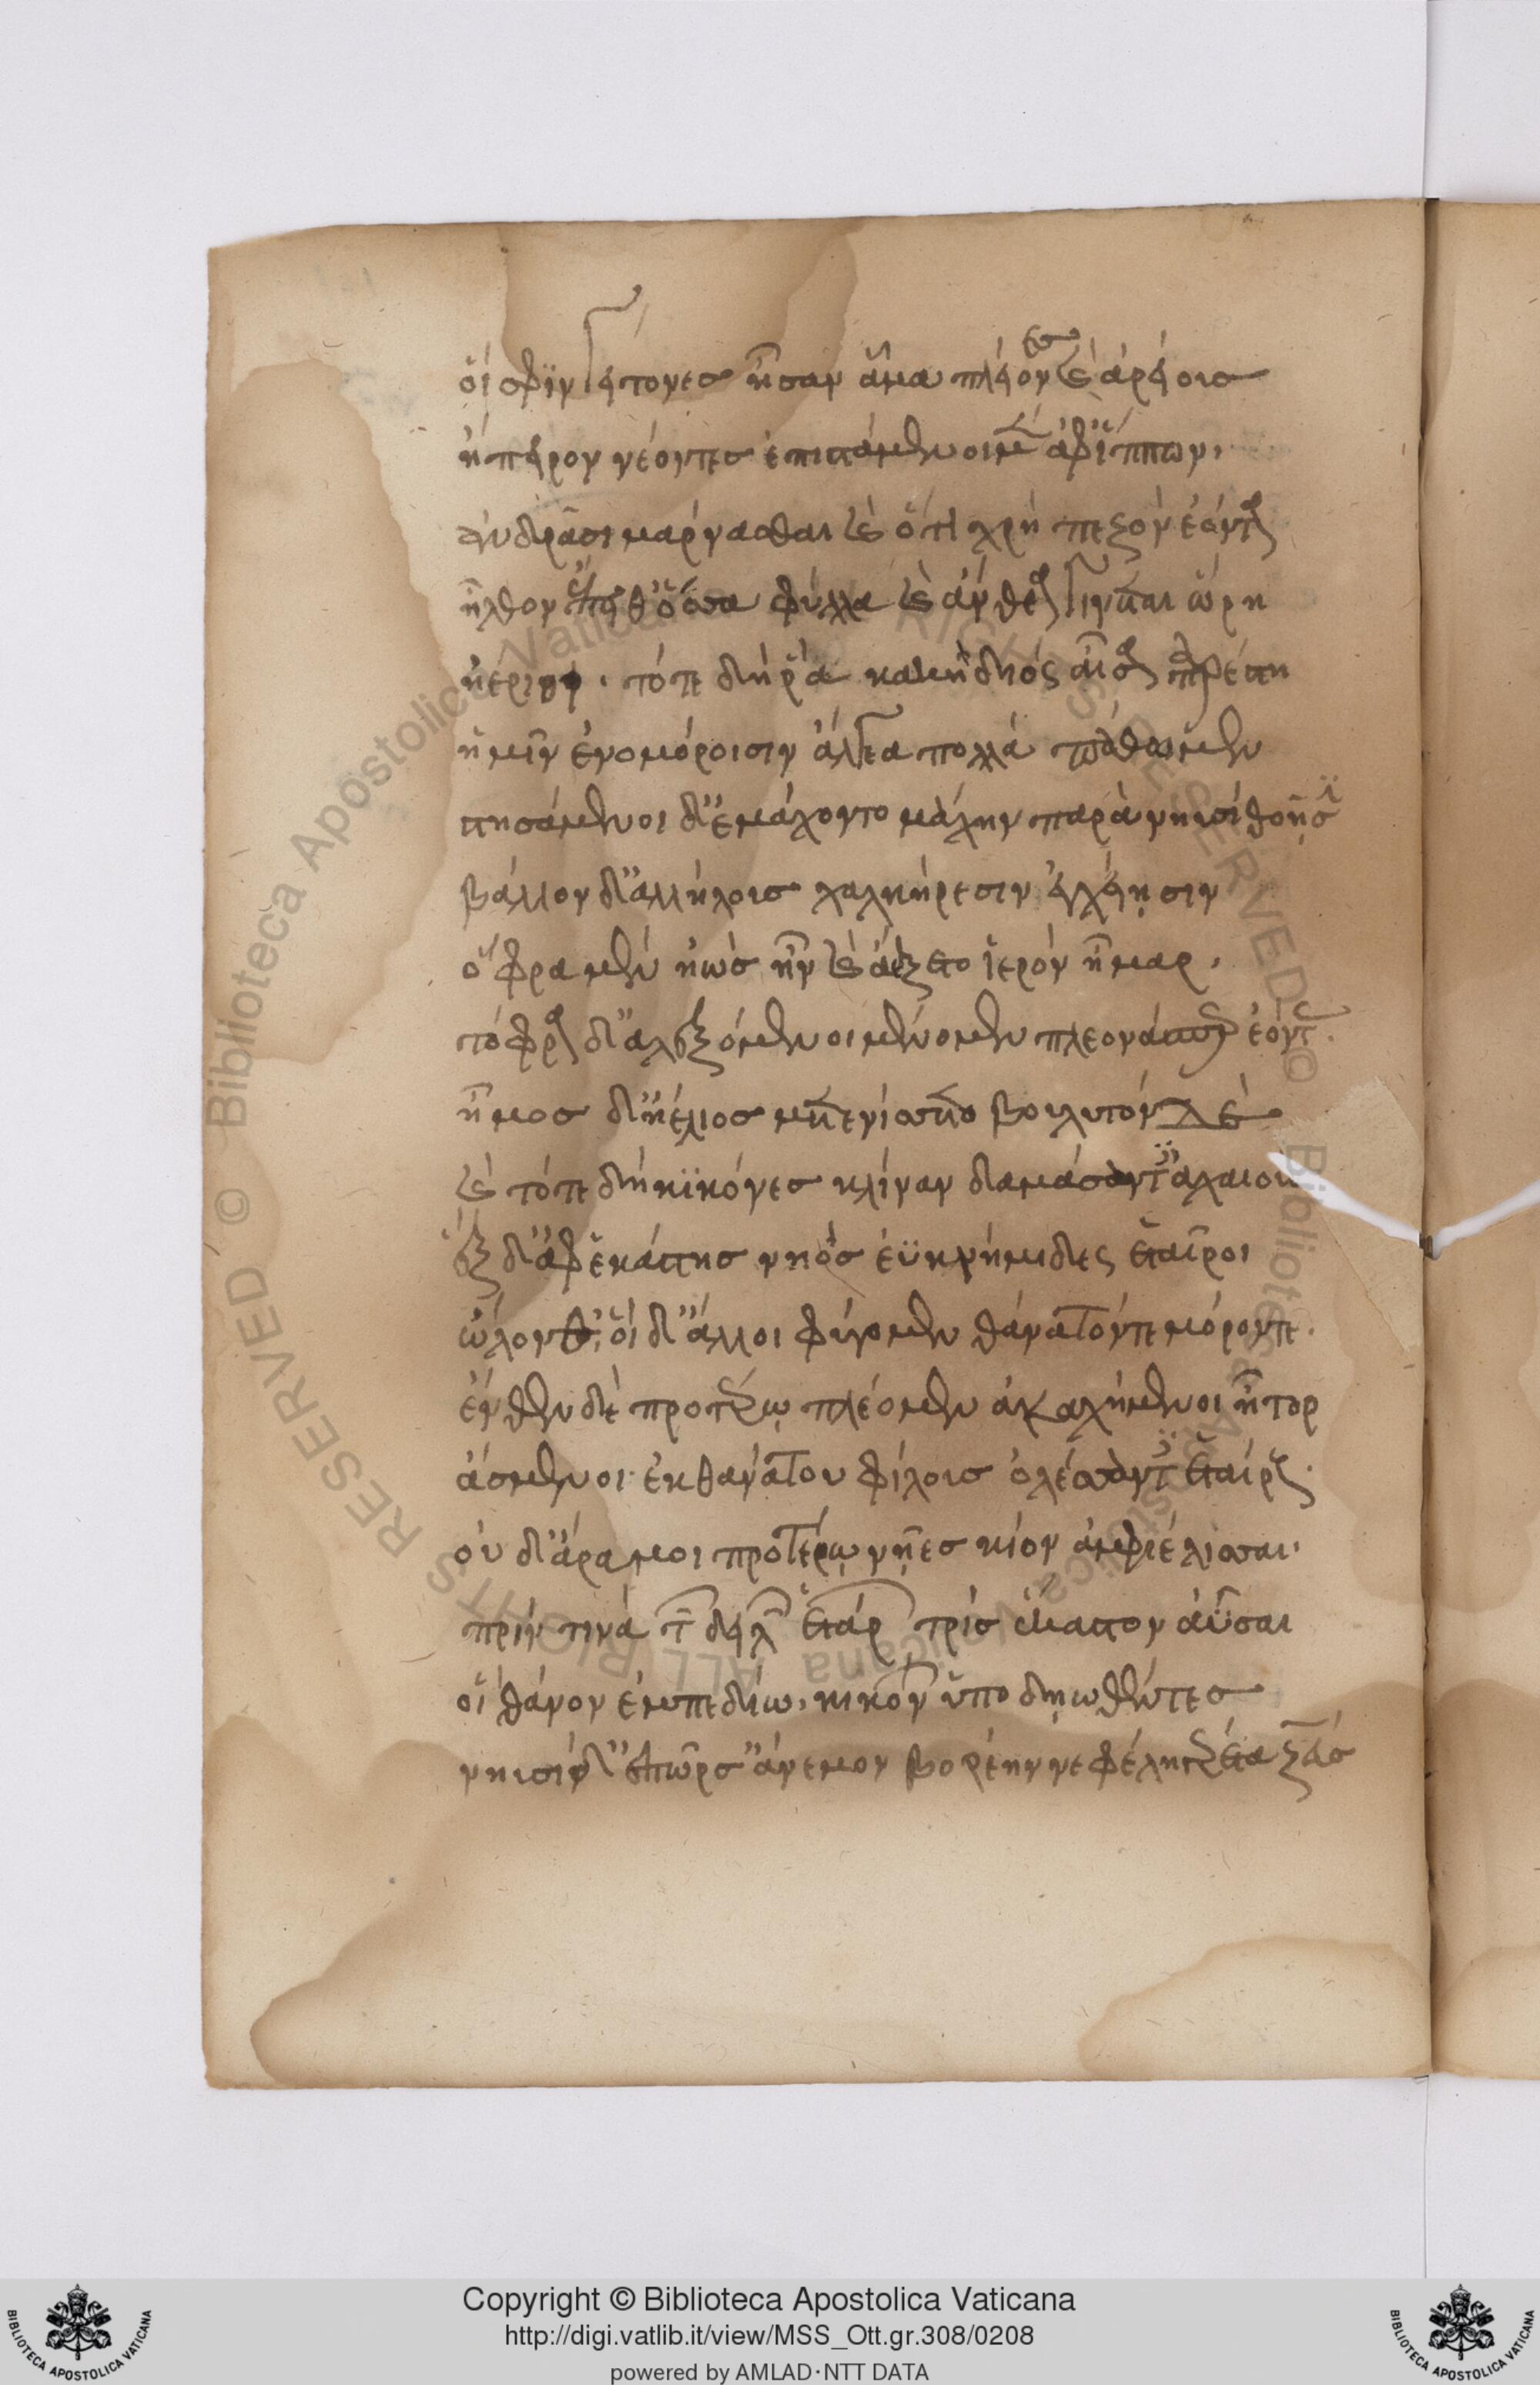 οἵ σφϊν γείτονες ἦσαν ἅμα πλείονες καὶ ἀρείους
ἤπειρον ναίοντες ἐπιστάμενοι μὲν ἀφ' ἵππων,
ἀνδράσι μάρνασθαι καὶ ὅτι χρὴ πεζὸν ἐόντα
ἦλθον ἔπειθ' ὅσσα φύλλα καὶ ἄνθεα γίγνεται ὥρῃ
ἠέριοι. τότε δή ῥα κακὴ διὸς αἶσα παρέστη
ἡμῖν αἰνομόροισιν ἄλγεα πολλὰ πάθοιμεν
στησάμενοι δ' ἐμάχοντο μάχην παρὰ νηυσὶ θοῇσι
βάλλον δ' ἀλλήλους χαλκήρεσιν ἐγχείῃσιν
ὄφρα μὲν ἠὼς ἦν καὶ ἀέξετο ἱερὸν ἦμαρ.
τόφρα δ' ἀλεξόμενοι μένομεν πλέονάς περ ἐόντας.
ἦμος δ' ἠέλιος μετενίσσετο βουλυτόνδε
καὶ τότε δὴ κίκονες κλῖναν δαμάσαντες ἀχαιούς
ἓξ δ' ἀφ' ἑκάστης νηὸς ἐϋκνήμιδες ἑταῖροι
ὤλονθ', οἱ δ' ἄλλοι φύγομεν θάνατόν τε μόρον τε.
ἔνθεν δὲ προτέρω πλέομεν ἀκαχήμενοι ἦτορ
ἄσμενοι ἐκ θανάτου φίλους ὀλέσαντες ἑταίρους.
οὐ δ' ἄρα μοι προτέρω νῆες κίον ἀμφιέλισσαι.
πρίν τινα τῶν δειλῶν ἑτάρων τρὶς ἕκαστον ἀῦσαι
οἳ θάνον ἐν πεδίῳ, κικόνων ὕπο δῃωθέντες
νηυσὶ δ' ἐπῶρσ' ἄνεμον βορέην νεφεληγερέτα ζεύς
Copyright © Biblioteca Apostolica Vaticana
http://digi.vatlib.it/view/MSS_Ott.gr.308/0208
powered by AMLAD·NTT DATA